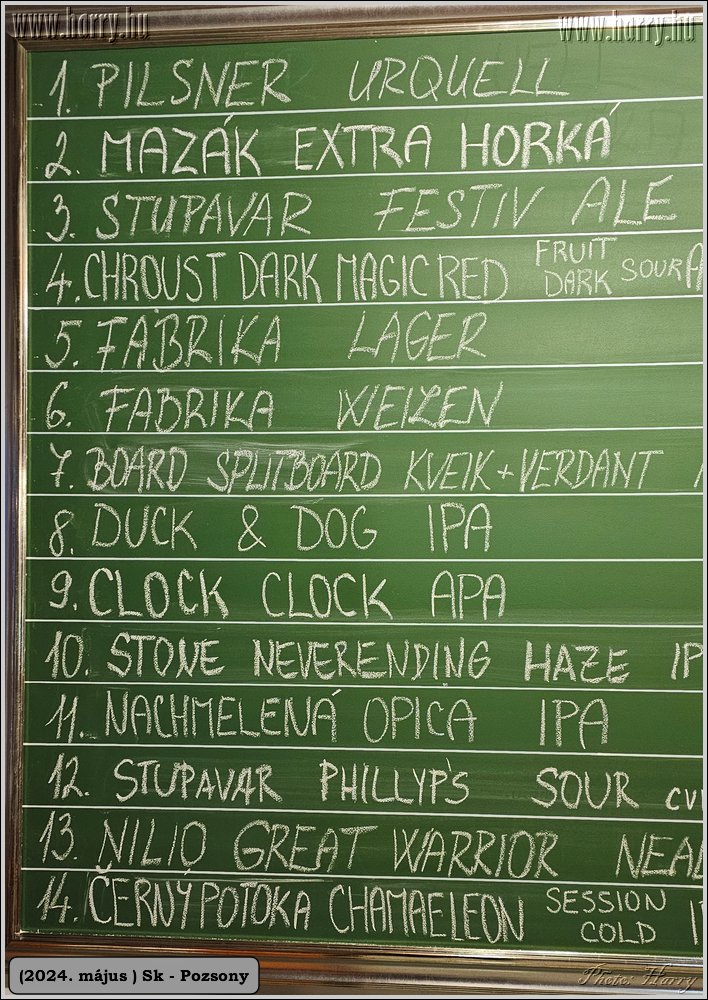 www.harry.hu www.harry.hu
1. PILSNER URQUELL
2. MAZÁK EXTRA HORKÁ
3. STUPAVAR FESTIV ALE
4. CHROUST DARK MAGIC RED FRUIT DARK SOUR A
5. FABRIKA LAGER
6. FABRIKA WEIZEN
7. BOARD SPLITBOARD KVEIK + VERDANT
8. DUCK & DOG IPA
9. CLOCK CLOCK APA
10. STONE NEVERENDING HAZE IP
11. NACHMELENÁ OPICA IPA
12. STUPAVAR PHILLYP'S SOUR
13. NILIO GREAT WARRIOR
14. ČERNÝ POTOKA CHAMAELEON SESSION COLD
(2024. május ) Sk - Pozsony
Photo: Harry